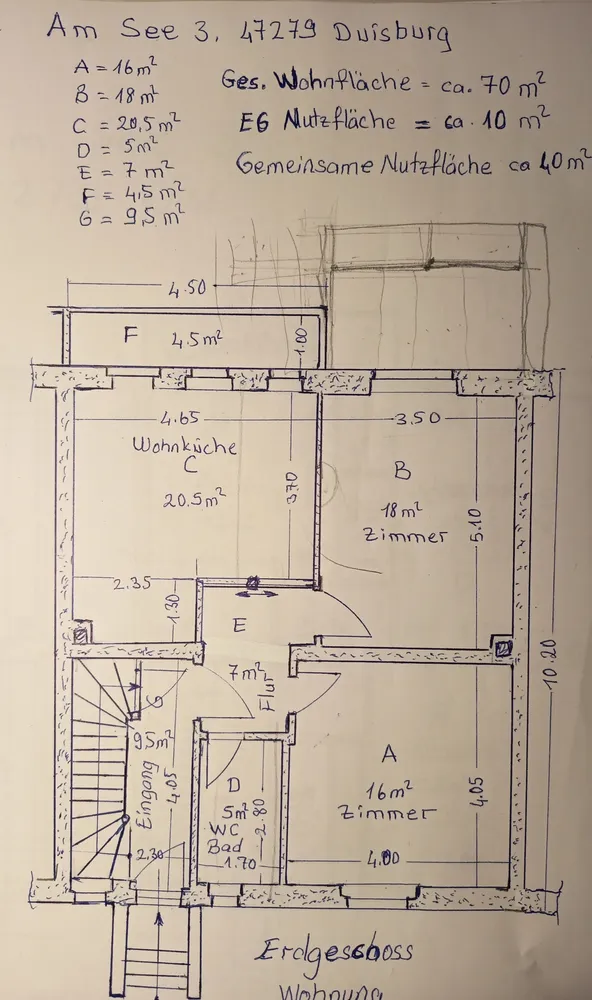 Am See 3, 47279 Duisburg
A = 16 m²
B = 18 m²
C = 20,5 m²
D = 5 m²
E = 7 m²
F = 4,5 m²
G = 9,5 m²
Ges. Wohnfläche = ca. 70 m²
EG Nutzfläche = ca. 10 m²
Gemeinsame Nutzfläche ca 40 m²
4.50
F 4.5 m²
1.00
4.65
3.50
Wohnküche
C
20.5 m²
3.70
B
18 m²
Zimmer
5.10
2.35
1.30
E
7 m²
Flur
10.20
G
9.5 m²
Eingang
4.05
2.30
D
5 m²
WC
Bad
2.80
1.70
A
16 m²
Zimmer
4.05
4.00
Erdgeschoss
Wohnung